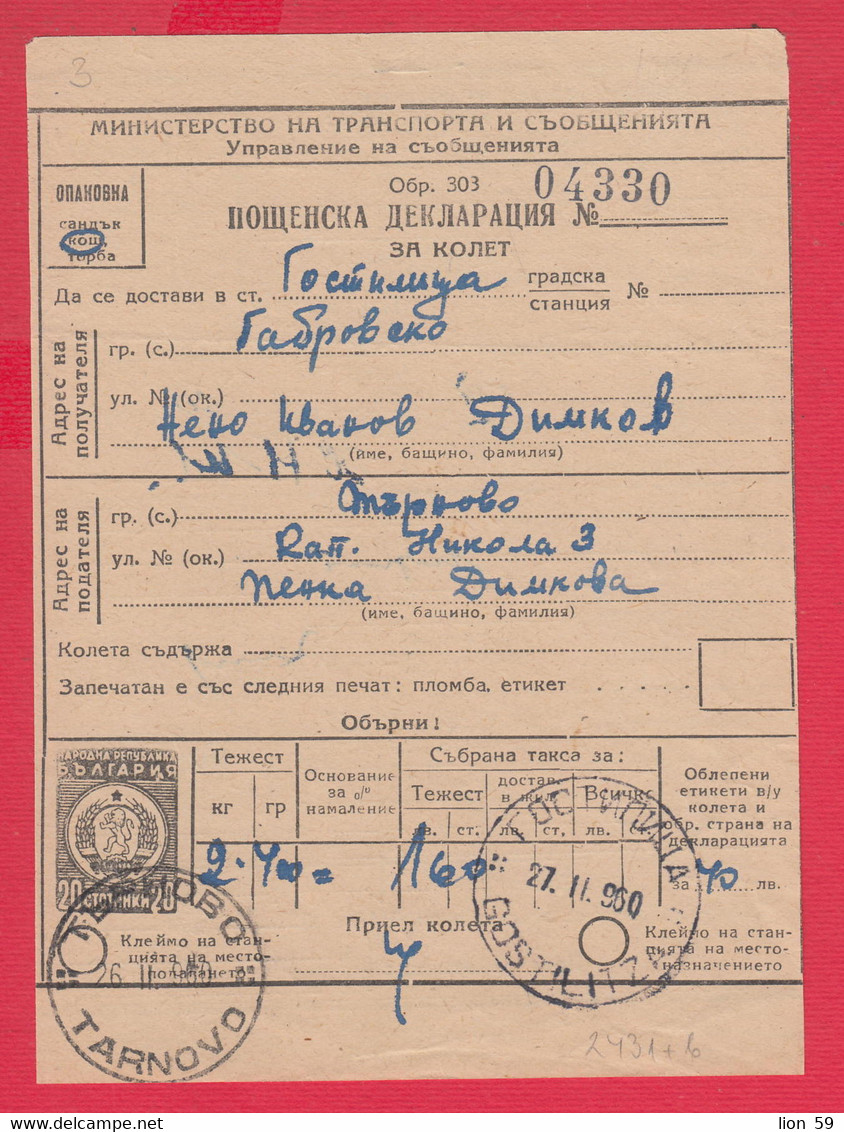 3
МИНИСТЕРСТВО НА ТРАНСПОРТА И СЪОБЩЕНИЯТА
Управление на съобщенията
ОПАКОВКА
сандък
кош,
торба
Обр. 303 04330
ПОЩЕНСКА ДЕКЛАРАЦИЯ №
ЗА КОЛЕТ
Да се достави в ст. Гостилица градска станция №
Адрес на получателя
гр. (с.) Габровско
ул. № (ок.)
Нено Иванов Димков
(име, бащино, фамилия)
Адрес на подателя
гр. (с.) Търново
ул. № (ок.) Кап. Никола 3
Пенка Димкова
(име, бащино, фамилия)
Колета съдържа
Запечатан е със следния печат: пломба, етикет
Обърни!
НАРОДНА РЕПУБЛИКА
БЪЛГАРИЯ
20 СТОТИНКИ 20
Тежест
кг гр
Основание за о/о намаление
Събрана такса за:
Тежест достав. в жил. Всичко
лв. ст. лв. ст. лв.
Облепени етикети в/у колета и обр. страна на декларацията
2.400= 160
за 40 лв.
Приел колета
Клеймо на станцията на местополагането
Клеймо на станцията на местоназначението
ТЪРНОВО
26.II.960
TARNOVO
ГОСТИЛИЦА
27.II.960
GOSTILITZA
2431+b
lion 59